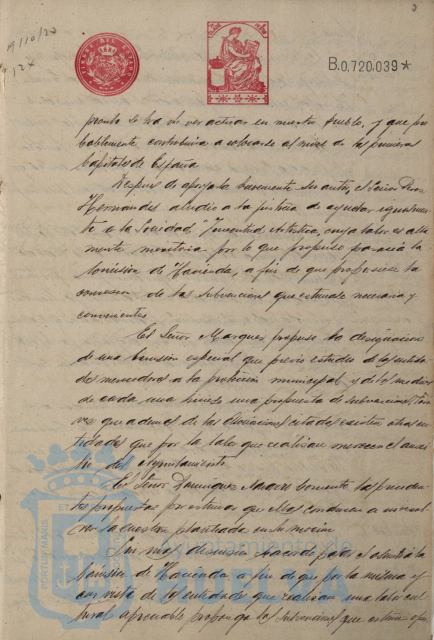 B.0,720,039*
pronto se ha de ver actuar en nuestro pueblo, y que pro
bablemente contribuira a colocarle al nivel de las primeras
Capitales de España
Despues de apoyada brevemente su autor, el Señor
Hernandez aludio a la justicia de ayudar igualmen
te a la Sociedad "Juventud Artistica, cuya labor es alta
mente meritoria por lo que propuso pasara a la
Comision de Hacienda, a fin de que propusiese la
concesion de las subvenciones que estimase necesarias y
convenientes
El Señor Marquez propuso la designacion
de una Comision especial que previo estudio de las entida
des merecedoras a la proteccion municipal y de los medios
de cada una hiciese una propuesta de subvenciones,
que ademas de las Asociaciones citadas existen otras en
tidades que por la labor que realizan merecen el auxi
lio del Ayuntamiento
El Señor Dominguez
propuestas por estimar que ellas conducen a
la cuestion planteada en la mocion
Sin mas discusion se acordo pase a la
Comision de Hacienda a fin de que por la misma y
con vista de las entidades que realizan una labor cul
tural apreciable proponga las subvenciones que estime
Ayuntamiento de
HUELVA